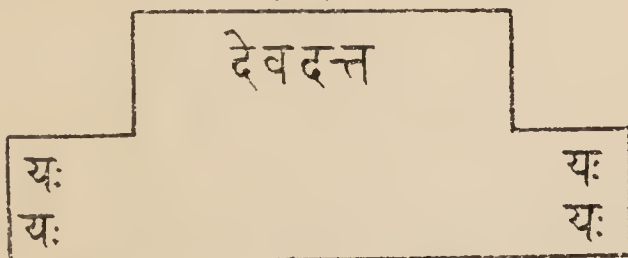 देवदत्त
यः यः
यः यः